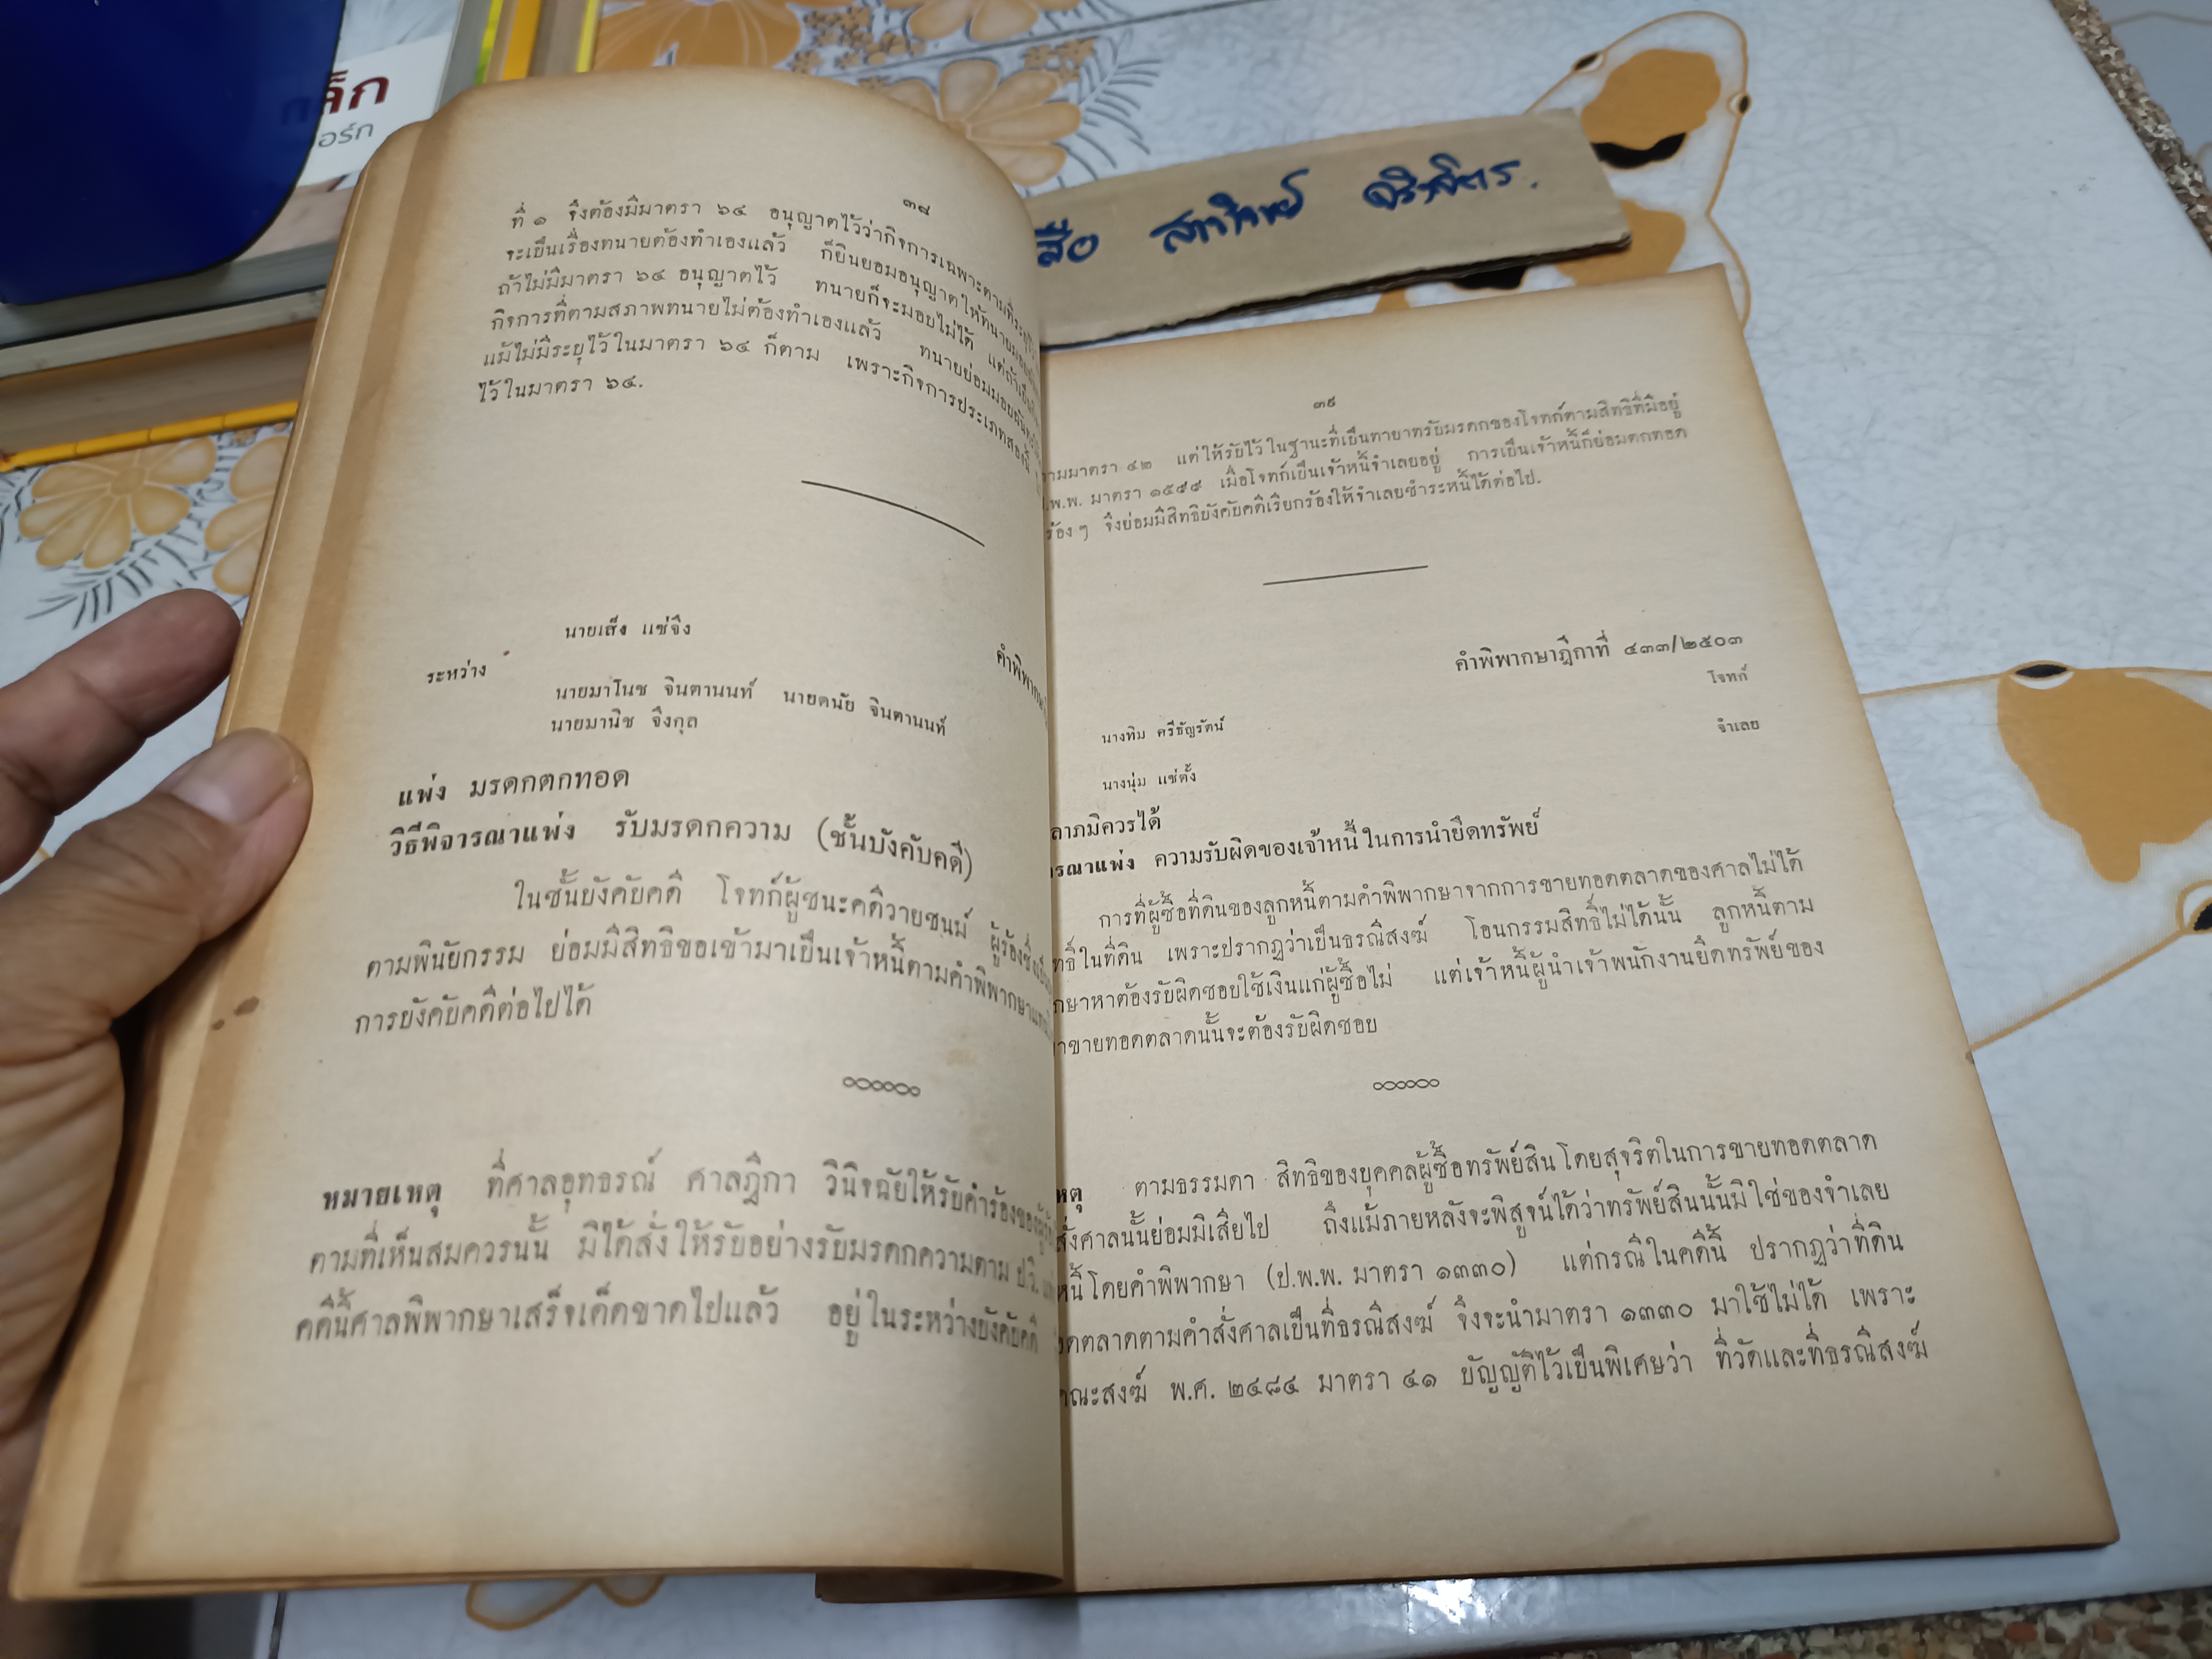 ล็ก
อร์ก
สือ สาวิทย์ จริงจิตร.
๓๘
ที่ ๑ จึงต้องมีมาตรา ๖๔ อนุญาตไว้ว่ากิจการเฉพาะตามที่ระบุ
จะเป็นเรื่องทนายต้องทำเองแล้ว ก็ยินยอมอนุญาตให้ทนาย
ถ้าไม่มีมาตรา ๖๔ อนุญาตไว้ ทนายก็จะมอบไม่ได้ แต่ถ้าเป็น
กิจการที่ตามสภาพทนายไม่ต้องทำเองแล้ว ทนายย่อมมอบ
แม้ไม่มีระบุไว้ในมาตรา ๖๔ ก็ตาม เพราะกิจการประเภทสองนี้
ไว้ในมาตรา ๖๔.
คำพิพากษา
นายเส็ง แซ่จึง
ระหว่าง
นายมาโนช จินตานนท์ นายดนัย จินตานนท์
นายมานิช จึงกุล
แพ่ง มรดกตกทอด
วิธีพิจารณาแพ่ง รับมรดกความ (ชั้นบังคับคดี)
ในชั้นบังคับคดี โจทก์ผู้ชนะคดีวายชนม์ ผู้ร้องซึ่ง
ตามพินัยกรรม ย่อมมีสิทธิขอเข้ามาเป็นเจ้าหนี้ตามคำพิพากษา
การบังคับคดีต่อไปได้
หมายเหตุ ที่ศาลอุทธรณ์ ศาลฎีกา วินิจฉัยให้รับคำร้องของ
ตามที่เห็นสมควรนั้น มิได้สั่งให้รับอย่างรับมรดกความตาม ป.วิ.
คดีนี้ศาลพิพากษาเสร็จเด็ดขาดไปแล้ว อยู่ในระหว่างบังคับคดี
๓๙
ามมาตรา ๔๒ แต่ให้รับไว้ในฐานะที่เป็นทายาทรับมรดกของโจทก์ตามสิทธิที่มีอยู่
.พ.พ. มาตรา ๑๕๙๙ เมื่อโจทก์เป็นเจ้าหนี้จำเลยอยู่ การเป็นเจ้าหนี้ก็ย่อมตกทอด
ร้อง ๆ จึงย่อมมีสิทธิบังคับคดีเรียกร้องให้จำเลยชำระหนี้ได้ต่อไป.
คำพิพากษาฎีกาที่ ๔๓๓/๒๕๐๓
นางทิม ศรีธัญรัตน์ โจทก์
นางนุ่ม แซ่ตั้ง จำเลย
ลาภมิควรได้
รณาแพ่ง ความรับผิดของเจ้าหนี้ในการนำยึดทรัพย์
การที่ผู้ซื้อที่ดินของลูกหนี้ตามคำพิพากษาจากการขายทอดตลาดของศาลไม่ได้
ทธิ์ในที่ดิน เพราะปรากฏว่าเป็นธรณีสงฆ์ โอนกรรมสิทธิ์ไม่ได้นั้น ลูกหนี้ตาม
กษาหาต้องรับผิดชอบใช้เงินแก่ผู้ซื้อไม่ แต่เจ้าหนี้ผู้นำเจ้าพนักงานยึดทรัพย์ของ
าขายทอดตลาดนั้นจะต้องรับผิดชอบ
หตุ ตามธรรมดา สิทธิของบุคคลผู้ซื้อทรัพย์สินโดยสุจริตในการขายทอดตลาด
สั่งศาลนั้นย่อมมิเสียไป ถึงแม้ภายหลังจะพิสูจน์ได้ว่าทรัพย์สินนั้นมิใช่ของจำเลย
หนี้โดยคำพิพากษา (ป.พ.พ. มาตรา ๑๓๓๐) แต่กรณีในคดีนี้ ปรากฏว่าที่ดิน
อดตลาดตามคำสั่งศาลเป็นที่ธรณีสงฆ์ จึงจะนำมาตรา ๑๓๓๐ มาใช้ไม่ได้ เพราะ
ณะสงฆ์ พ.ศ. ๒๔๘๔ มาตรา ๔๑ บัญญัติไว้เป็นพิเศษว่า ที่วัดและที่ธรณีสงฆ์